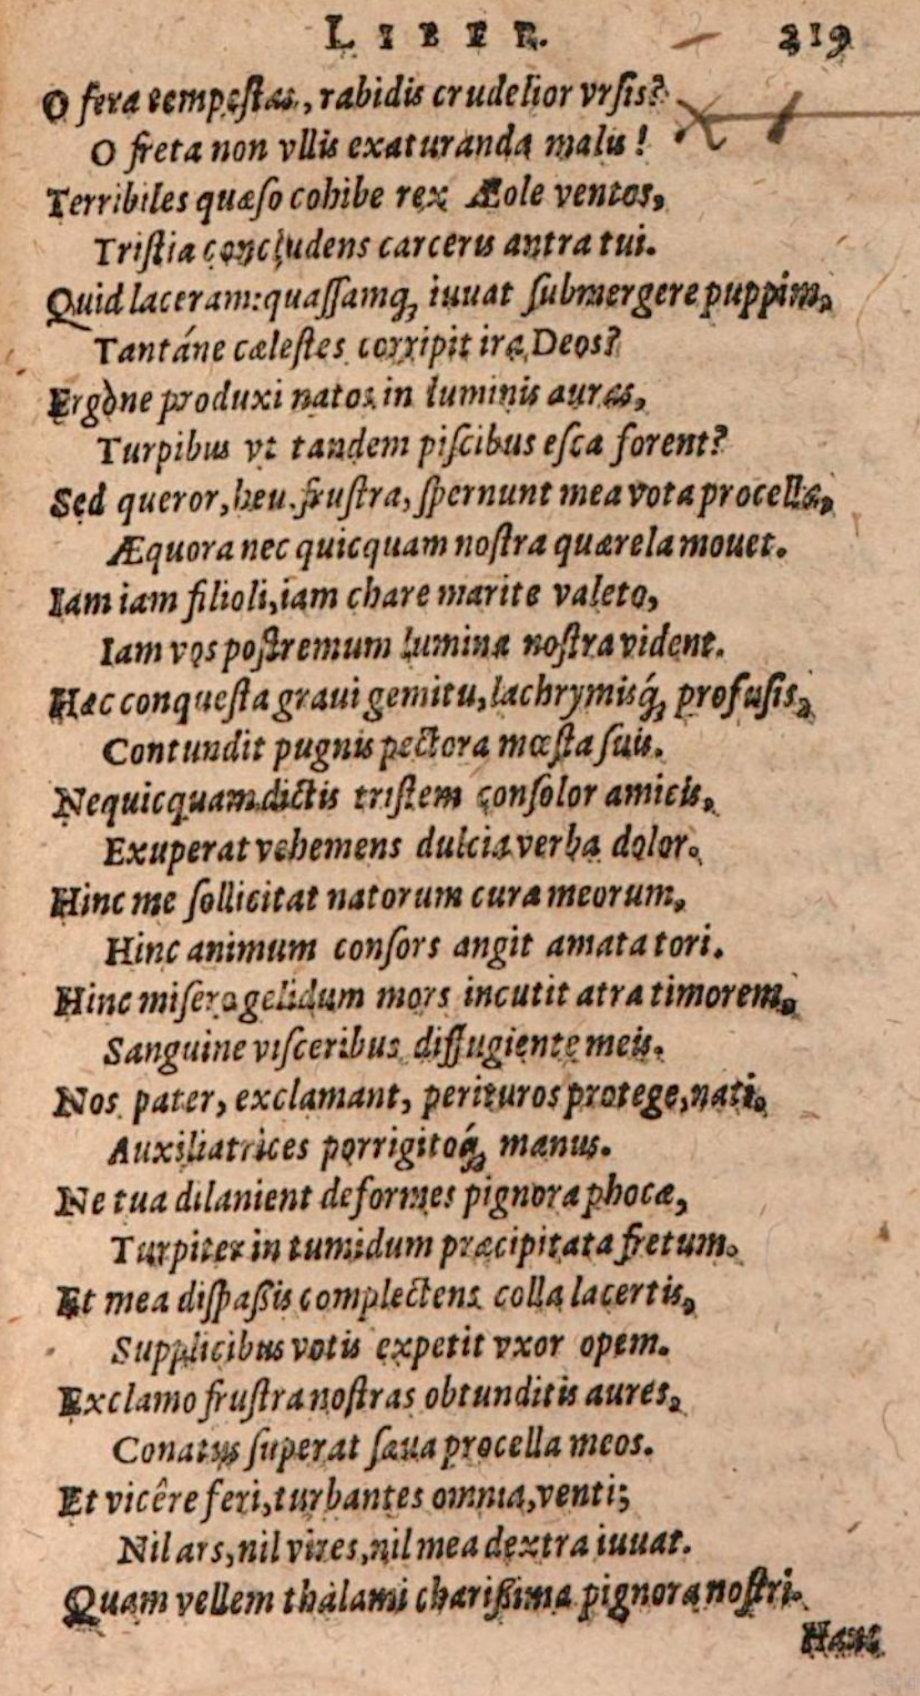 LIBER. 219
O fera tempestas, rabidis crudelior vrsis?
O freta non vllis exaturanda malis!
Terribiles quæso cohibe rex Æole ventos,
Tristia concludens carceris antra tui.
Quid laceram: quassamq́; iuuat submergere puppim,
Tantáne cælestes corripit ira Deos?
Ergòne produxi natos in luminis auras,
Turpibus vt tandem piscibus esca forent?
Sed queror, heu frustra, spernunt mea vota procellæ,
Æquora nec quicquam nostra quærela mouet.
Iam iam filioli, iam chare marite valeto,
Iam vos postremum lumina nostra vident.
Hæc conquesta graui gemitu, lachrymisq́; profusis,
Contundit pugnis pectora mœsta suis.
Nequicquam dictis tristem consolor amicis,
Exuperat vehemens dulcia verba dolor.
Hinc me sollicitat natorum cura meorum,
Hinc animum consors angit amata tori.
Hinc misero gelidum mors incutit atra timorem,
Sanguine visceribus diffugiente meis.
Nos pater, exclamant, perituros protege, nati.
Auxiliatrices porrigitoq́; manus.
Ne tua dilanient deformes pignora phocæ,
Turpiter in tumidum præcipitata fretum.
Et mea dispaßis complectens colla lacertis,
Supplicibus votis expetit vxor opem.
Exclamo frustra nostras obtunditis aures,
Conatus superat sæua procella meos.
Et vicêre feri, turbantes omnia, venti;
Nil ars, nil vires, nil mea dextra iuuat.
Quam vellem thalami charißima pignora nostri.
Hanc